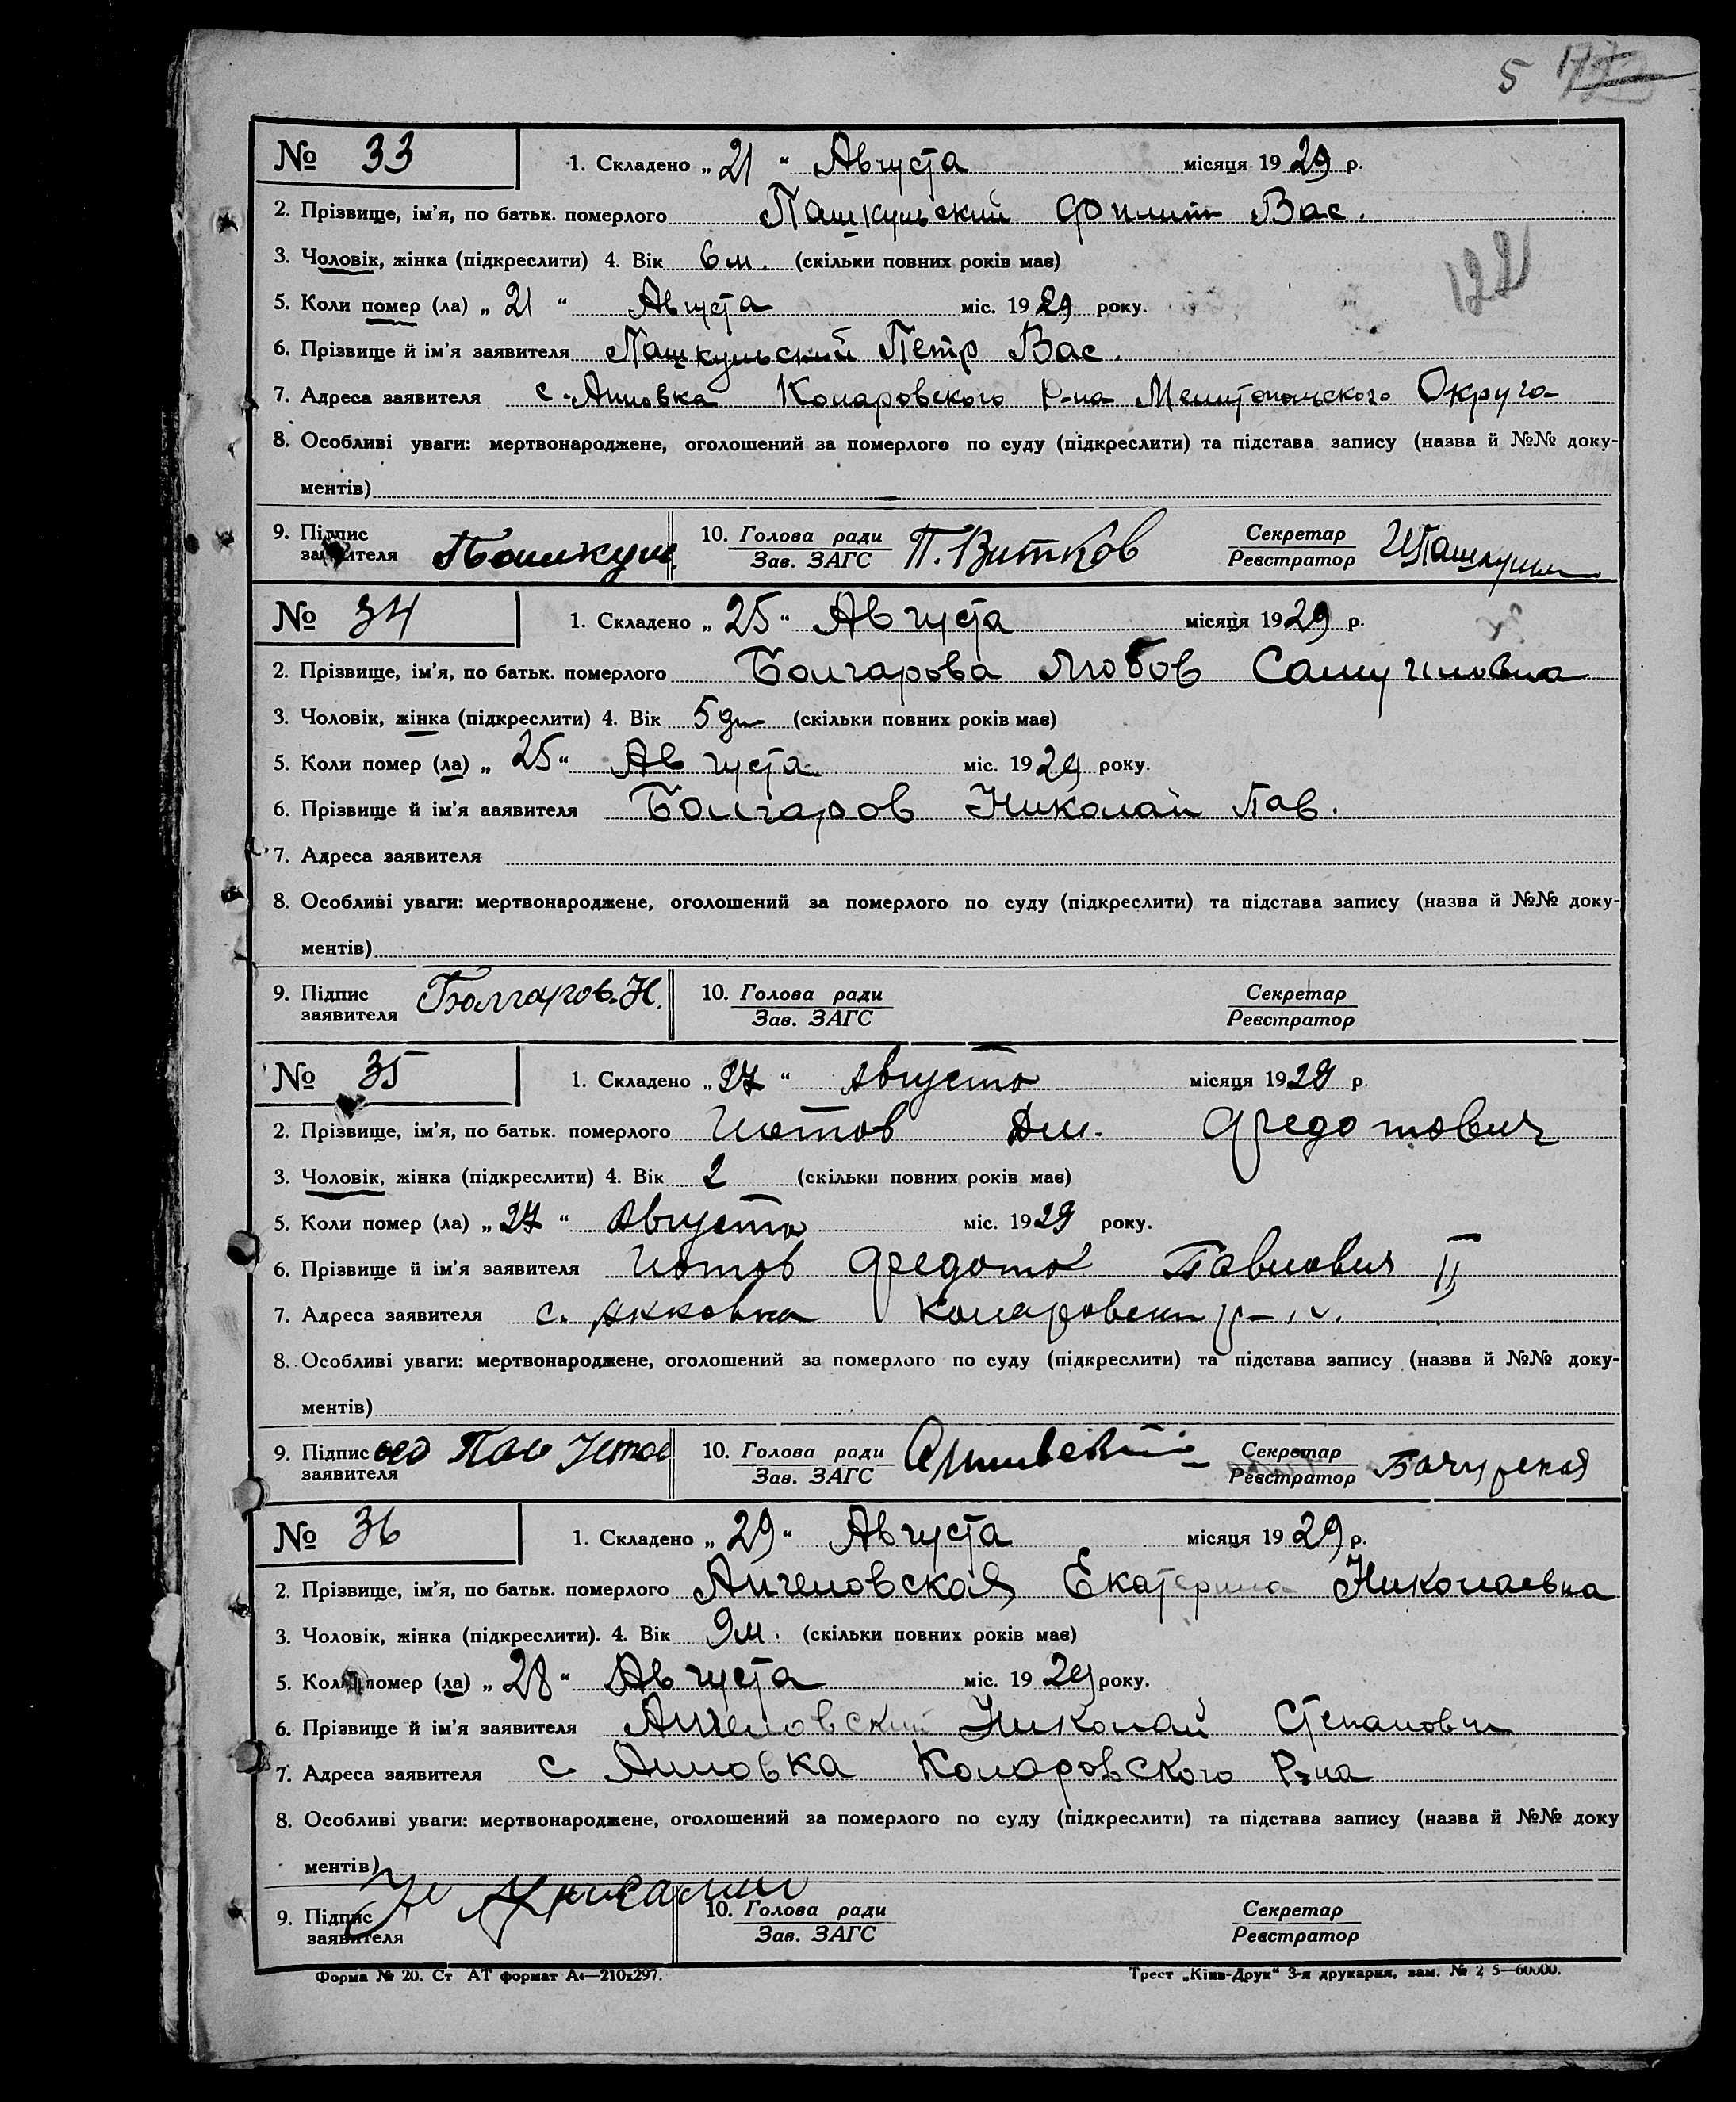 5 173
№ 33 1. Складено „ 21 “ Августа місяця 1929 р.
2. Прізвище, ім’я, по батьк. померлого Пашкульский Филип Вас.
3. Чоловік, жінка (підкреслити) 4. Вік 6 м. (скільки повних років має)
122
5. Коли помер (ла) „ 21 “ Августа міс. 1929 року.
6. Прізвище й ім’я заявителя Пашкульский Петр Вас.
7. Адреса заявителя с. Анновка Коларовского Р-на Мелитопольского Округа
8. Особливі уваги: мертвонароджене, оголошений за померлого по суду (підкреслити) та підстава запису (назва й №№ доку-
ментів)
9. Підпис заявителя Пашкул. 10. Голова ради П. Витков Секретар
Зав. ЗАГС Реєстратор
№ 34 1. Складено „ 25 “ Августа місяця 1929 р.
2. Прізвище, ім’я, по батьк. померлого Болгарова Любов Самуиловна
3. Чоловік, жінка (підкреслити) 4. Вік 5 дн (скільки повних років має)
5. Коли помер (ла) „ 25 “ Августа міс. 1929 року.
6. Прізвище й ім’я ааявителя Болгаров Николай Пав.
7. Адреса заявителя
8. Особливі уваги: мертвонароджене, оголошений за померлого по суду (підкреслити) та підстава запису (назва й №№ доку-
ментів)
9. Підпис заявителя Болгаров. Н. 10. Голова ради Секретар
Зав. ЗАГС Реєстратор
№ 35 1. Складено „ 27 “ августа місяця 1929 р.
2. Прізвище, ім’я, по батьк. померлого Дм. Федотович
3. Чоловік, жінка (підкреслити) 4. Вік 2 (скільки повних років має)
5. Коли помер (ла) „ 27 “ августа міс. 1929 року.
6. Прізвище й ім’я заявителя Федот Павлович II
7. Адреса заявителя с. Анновка Коларовский р-н.
8. Особливі уваги: мертвонароджене, оголошений за померлого по суду (підкреслити) та підстава запису (назва й №№ доку-
ментів)
9. Підпис заявителя 10. Голова ради Секретар
Зав. ЗАГС Реєстратор
№ 36 1. Складено „ 29 “ Августа місяця 1929 р.
2. Прізвище, ім’я, по батьк. померлого Ангеловская Екатерина Николаевна
3. Чоловік, жінка (підкреслити). 4. Вік 9 м. (скільки повних років має)
5. Коли помер (ла) „ 28 “ Августа міс. 1929 року.
6. Прізвище й ім’я заявителя Ангеловский Николай Степанович
7. Адреса заявителя с. Анновка Коларовского Р-на
8. Особливі уваги: мертвонароджене, оголошений за померлого по суду (підкреслити) та підстава запису (назва й №№ доку
ментів)
9. Підпис заявителя 10. Голова ради Секретар
Зав. ЗАГС Реєстратор
Форма № 20. Ст АТ формат А₄—210x297. Трест „Київ-Друк“ 3-я друкарня, зам. № 2 5—60000.